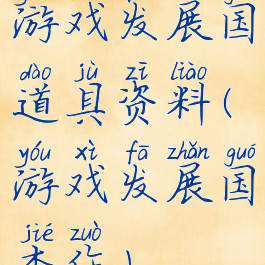 游戏发展国
dào jù zī liào
道具资料(
yóu xì fā zhǎn guó
游戏发展国
jié zuò
杰作)